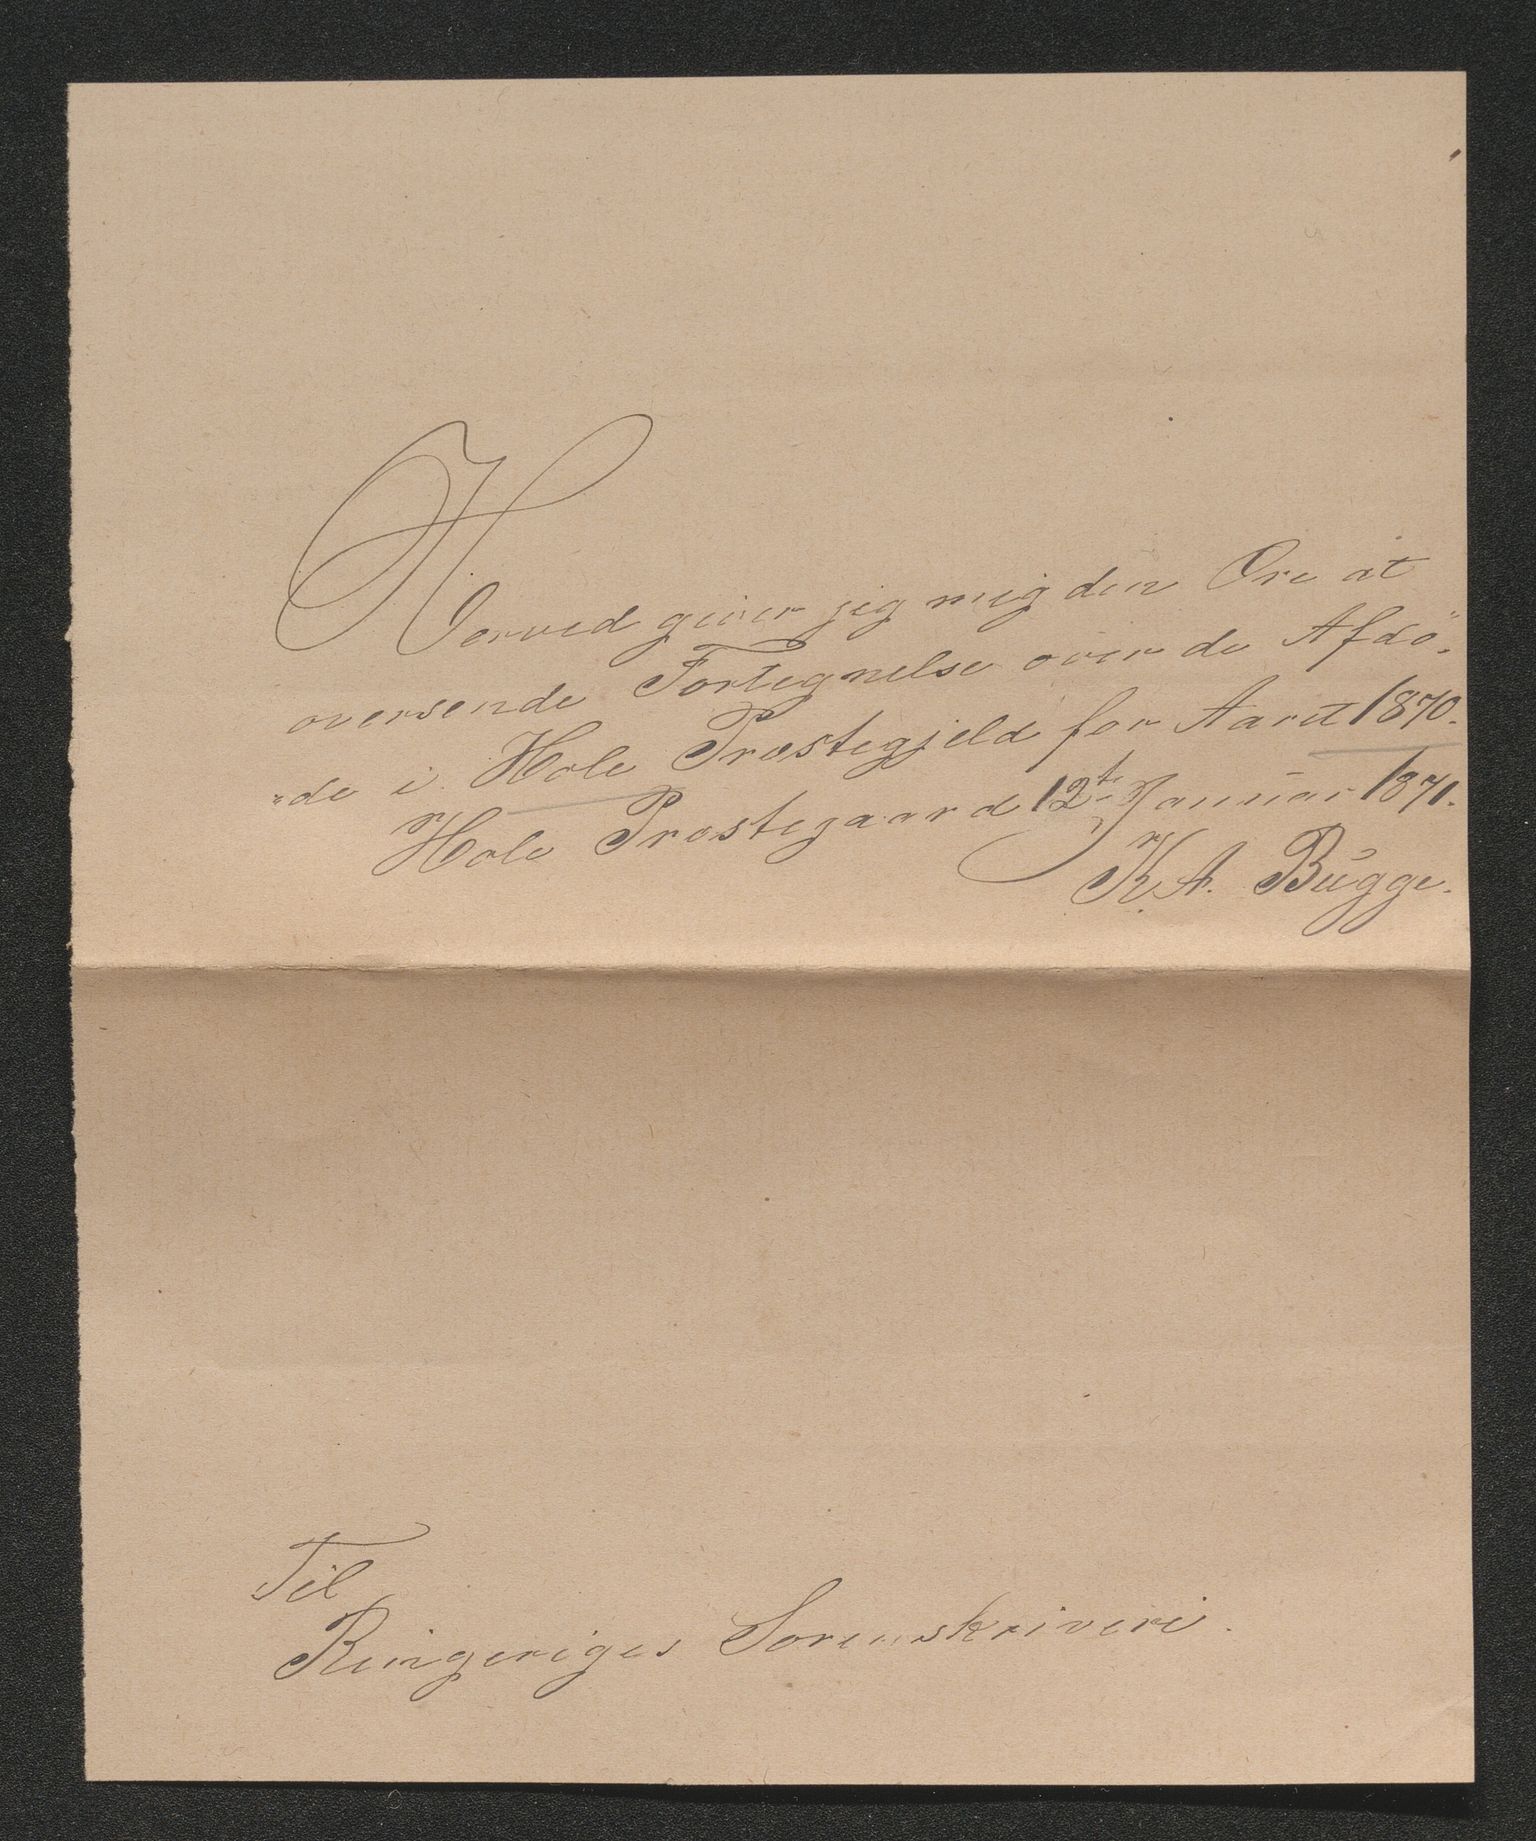 Herved giver jeg mig den Ære at
oversende Fortegnelse over de Afdö-
=de i Hole Præstegjeld for Aaret 1870.
Hole Præstegaard 12te Januar 1871.
K. A. Bugge.
Til
Ringeriges Sorenskriveri.